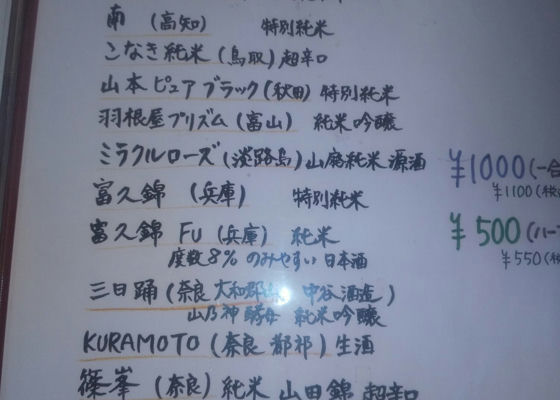 南 (高知) 特別純米
こなき純米 (鳥取) 超辛口
山本ピュアブラック (秋田) 特別純米
羽根屋プリズム (富山) 純米吟醸
ミラクルローズ (淡路島) 山廃純米 源酒
¥1000 (一合
¥1100 (税
富久錦 (兵庫) 特別純米
富久錦 FU (兵庫) 純米
¥500 (ハー
度数8% のみやすい 日本酒
¥550 (税
三日踊 (奈良 大和郡山 中谷酒造)
山乃神酵母 純米吟醸
KURAMOTO (奈良 都祁) 生酒
篠峯 (奈良) 純米 山田錦 超辛口